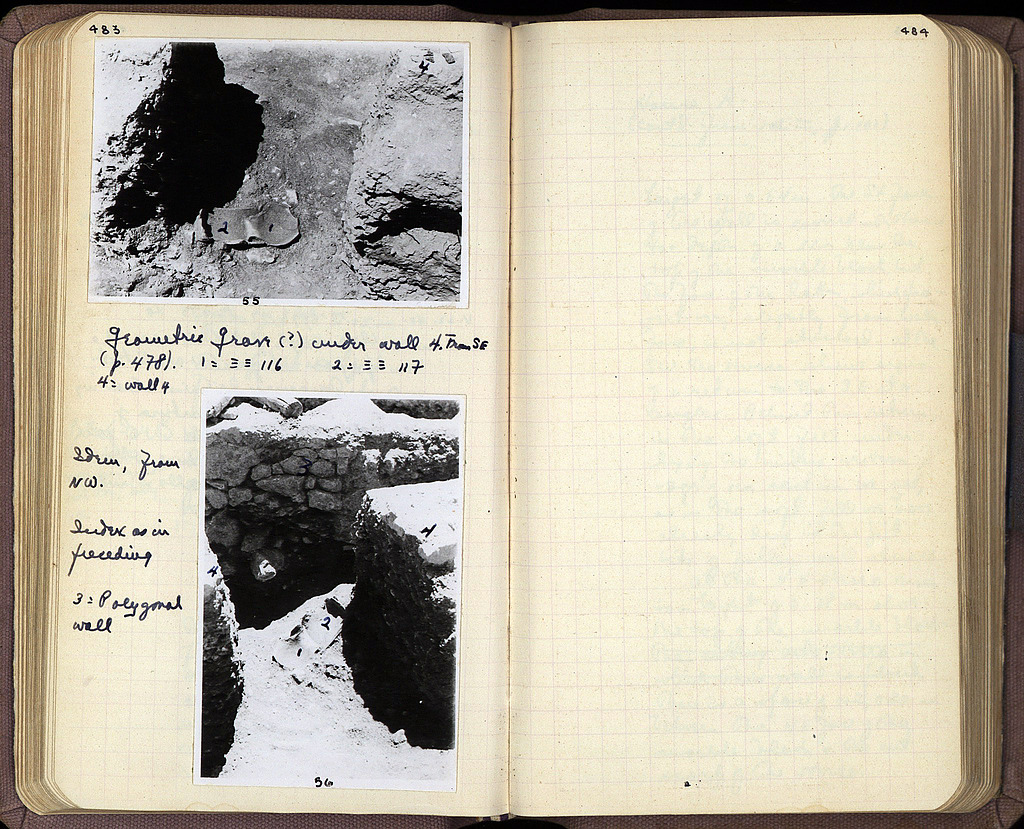 483
484
4
2 1
55
Geometric Grave (?) under wall 4. From SE
(p. 478). 1 = ΞΞ 116 2 = ΞΞ 117
4 = wall 4
Idem, from
NW.
Index as in
preceding
3 = Polygonal
wall
3
4
4
2
1
56